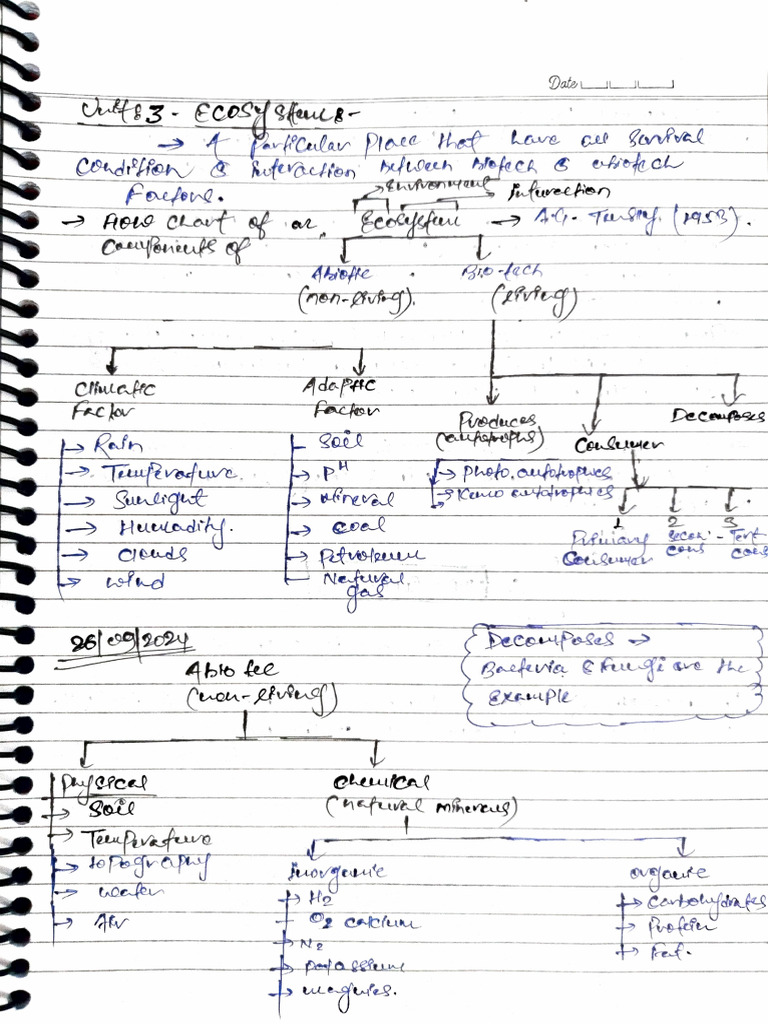 Date
Unit 3 - Ecosystem :-
→ A Particular Place that have all survival
Condition & interaction between biotech & abiotech
Factors.
Environment Interaction
→ Flow chart of an Ecosystem → A.G. Tansley (1953).
Components of
Abiotic Bio-tech
(non-living). (living)
Climatic Adaptic
Factor Factor Produces Decomposes
(autotrophs) Consumer
→ Rain Soil
→ Temperature → PH → Photo. autotrophics
→ Sunlight → Mineral → Kemo autotrophics
→ Humadity. → Coal 1 2 3
→ Clouds → Petroleum Primary Secon - Tert
→ Wind Natural Consumer cons cons
gas
26/09/2024
Decomposes →
Abiotec Bacteria & Fungi are the
(non-living) Example
Physical Chemical
→ Soil (natural minerals)
→ Temperature
→ topography Inorganic organic
→ water → H2 → Carbohydrates
→ Air O2 calcium → Protein
→ N2 → Fat.
→ potassium
→ magnies.